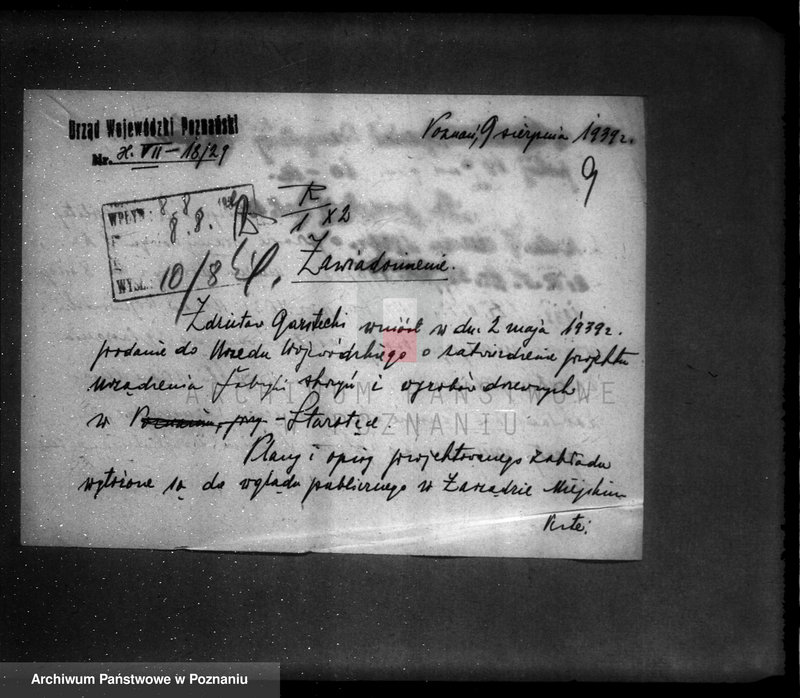 Urząd Wojewódzki Poznański
Poznań, 9 sierpnia 1939 r.
Nr. VII-18/29
9
WPŁYW: 8.8.
8.8.
WYSŁ.: 10/8
R
1 X 2
Zawiadomienie.
Zdzisław Garstecki wniósł w dn. 2 maja 1939 r.
podanie do Urzędu Wojewódzkiego o zatwierdzenie projektu
urządzenia fabryki skrzyń i wyrobów drzewnych
w Poznaniu, przy - Starołęce.
Plany i opisy projektowanego zakładu
wyłożone są do wglądu publicznego w Zarządzie Miejskim
ARCHIWUM PAŃSTWOWE
W POZNANIU
Archiwum Państwowe w Poznaniu